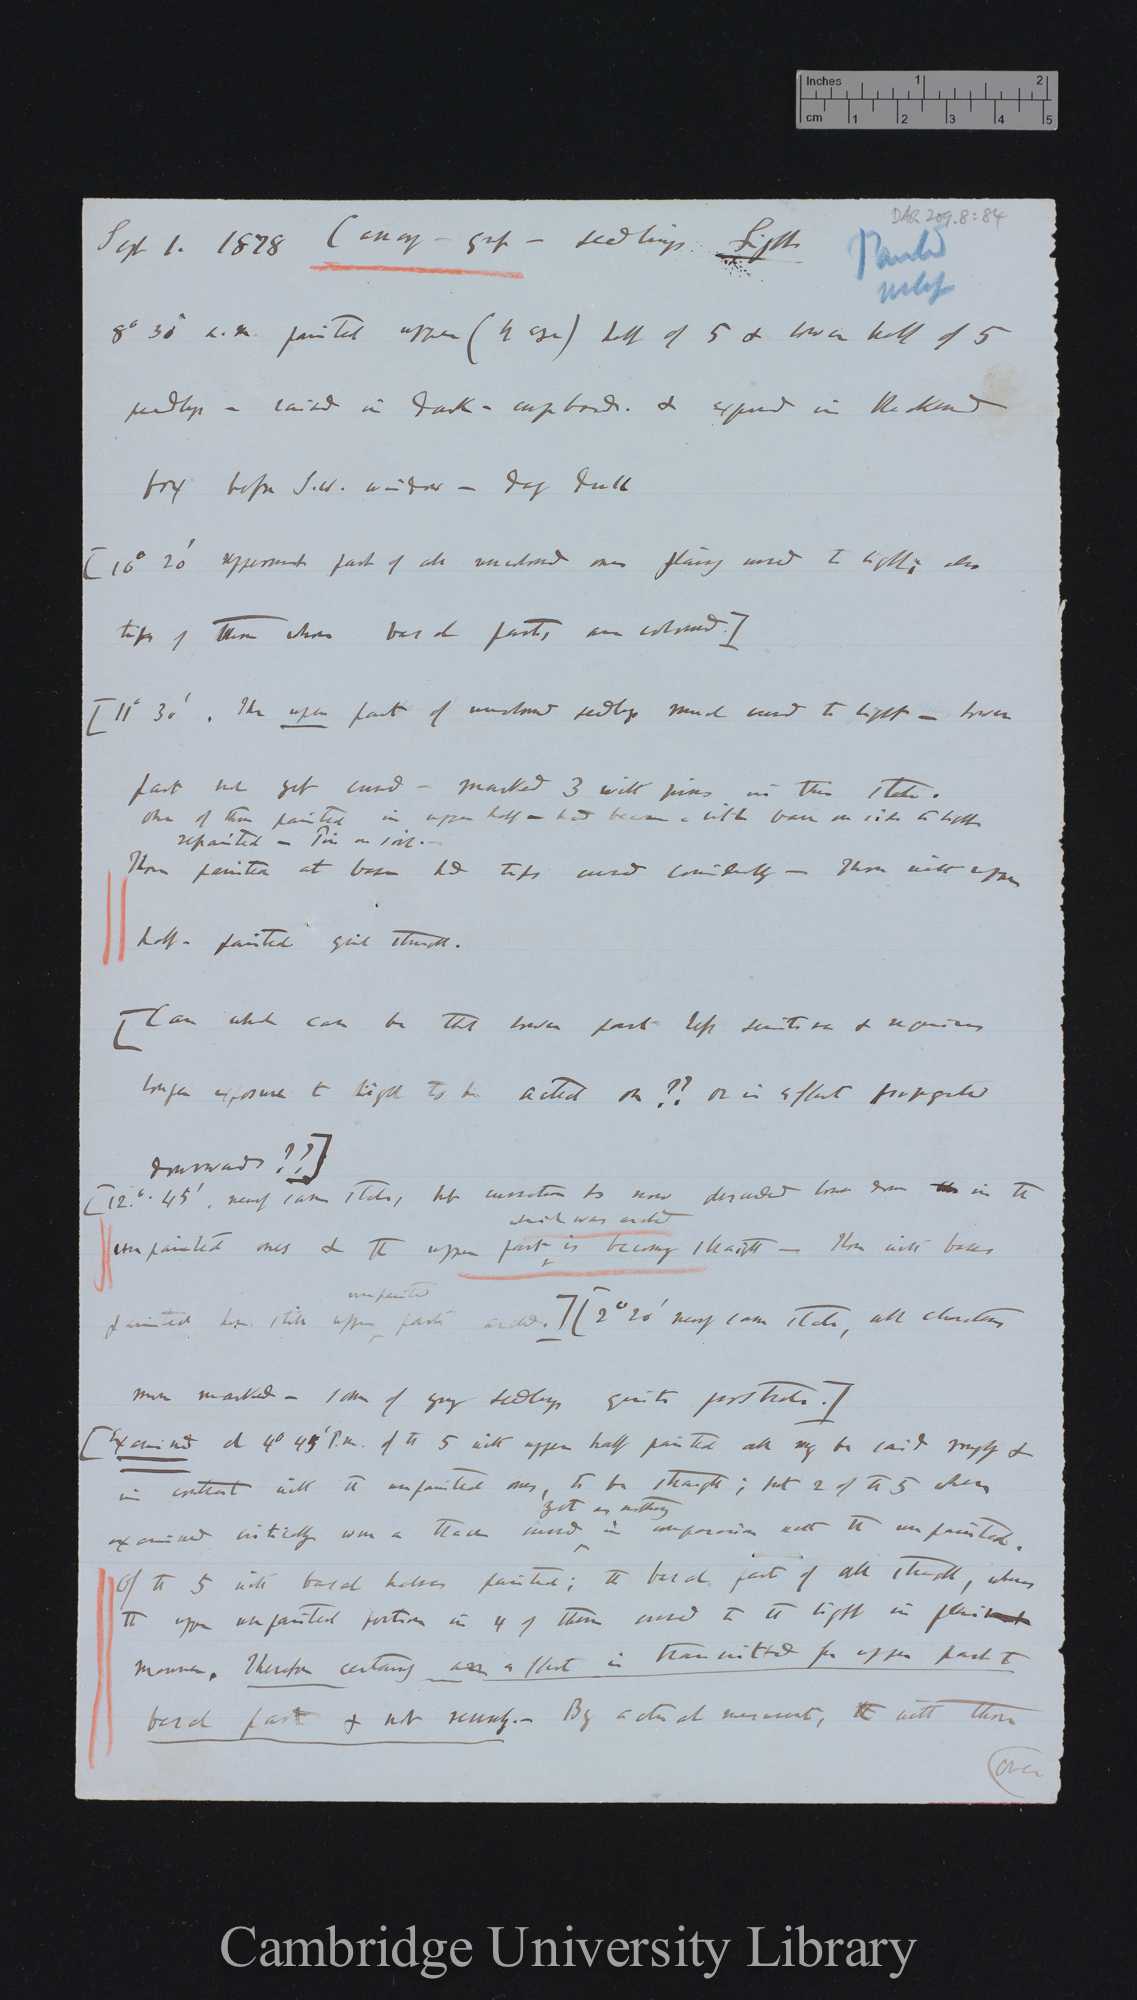 Inches 1 2
cm 1 2 3 4 5
DAR 209.8:84
Sept 1. 1878 Canary-grass-seedlings. Light
Painted
8° 30' a.m. painted upper half of 5 & lower half of 5
seedlings – raised in dark-cupboard. & exposed in blackened
box before S.W. window – day dull
[10° 20' uppermost part of all uncoloured ones plainly curved to light; also
tips of those whose basal parts, are coloured.]
[11° 30'. The upper part of uncoloured seedlings much curved to light – lower
part not yet curved – marked 3 with pins in this state.
one of those painted in upper half – had become a little bare on side to light
repainted – Pin on soil. –
Those painted at base had tips curved considerably – Those with upper
half-painted quite straight.
[Can it be that lower part less sensitive & requires
longer exposure to light to be acted on ?? or is effect propagated
downwards ??]
[12° 45', nearly same state, but curvature has now descended lower down in the
which was arched
unpainted ones & the upper part, is becoming straight – Those with bases
unpainted
painted have still upper parts arched.] [2° 20' nearly same state, all characters
more marked – some of grass seedlings quite prostrate.]
[Examined at 4° 45' P.m. of the 5 with upper half painted all may be said roughly &
in contrast with the unpainted ones, to be straight; but 2 of the 5 when
yet as nothing
examined critically were a trace curved in comparison with the unpainted.
Of the 5 with basal halves painted; the basal part of all straight, whereas
the upper unpainted portion in 4 of them curved to the light in plain
manner. Therefore certainly effect is transmitted from upper part to
basal part & not reversely. – By actual measurement, with those
(over
Cambridge University Library